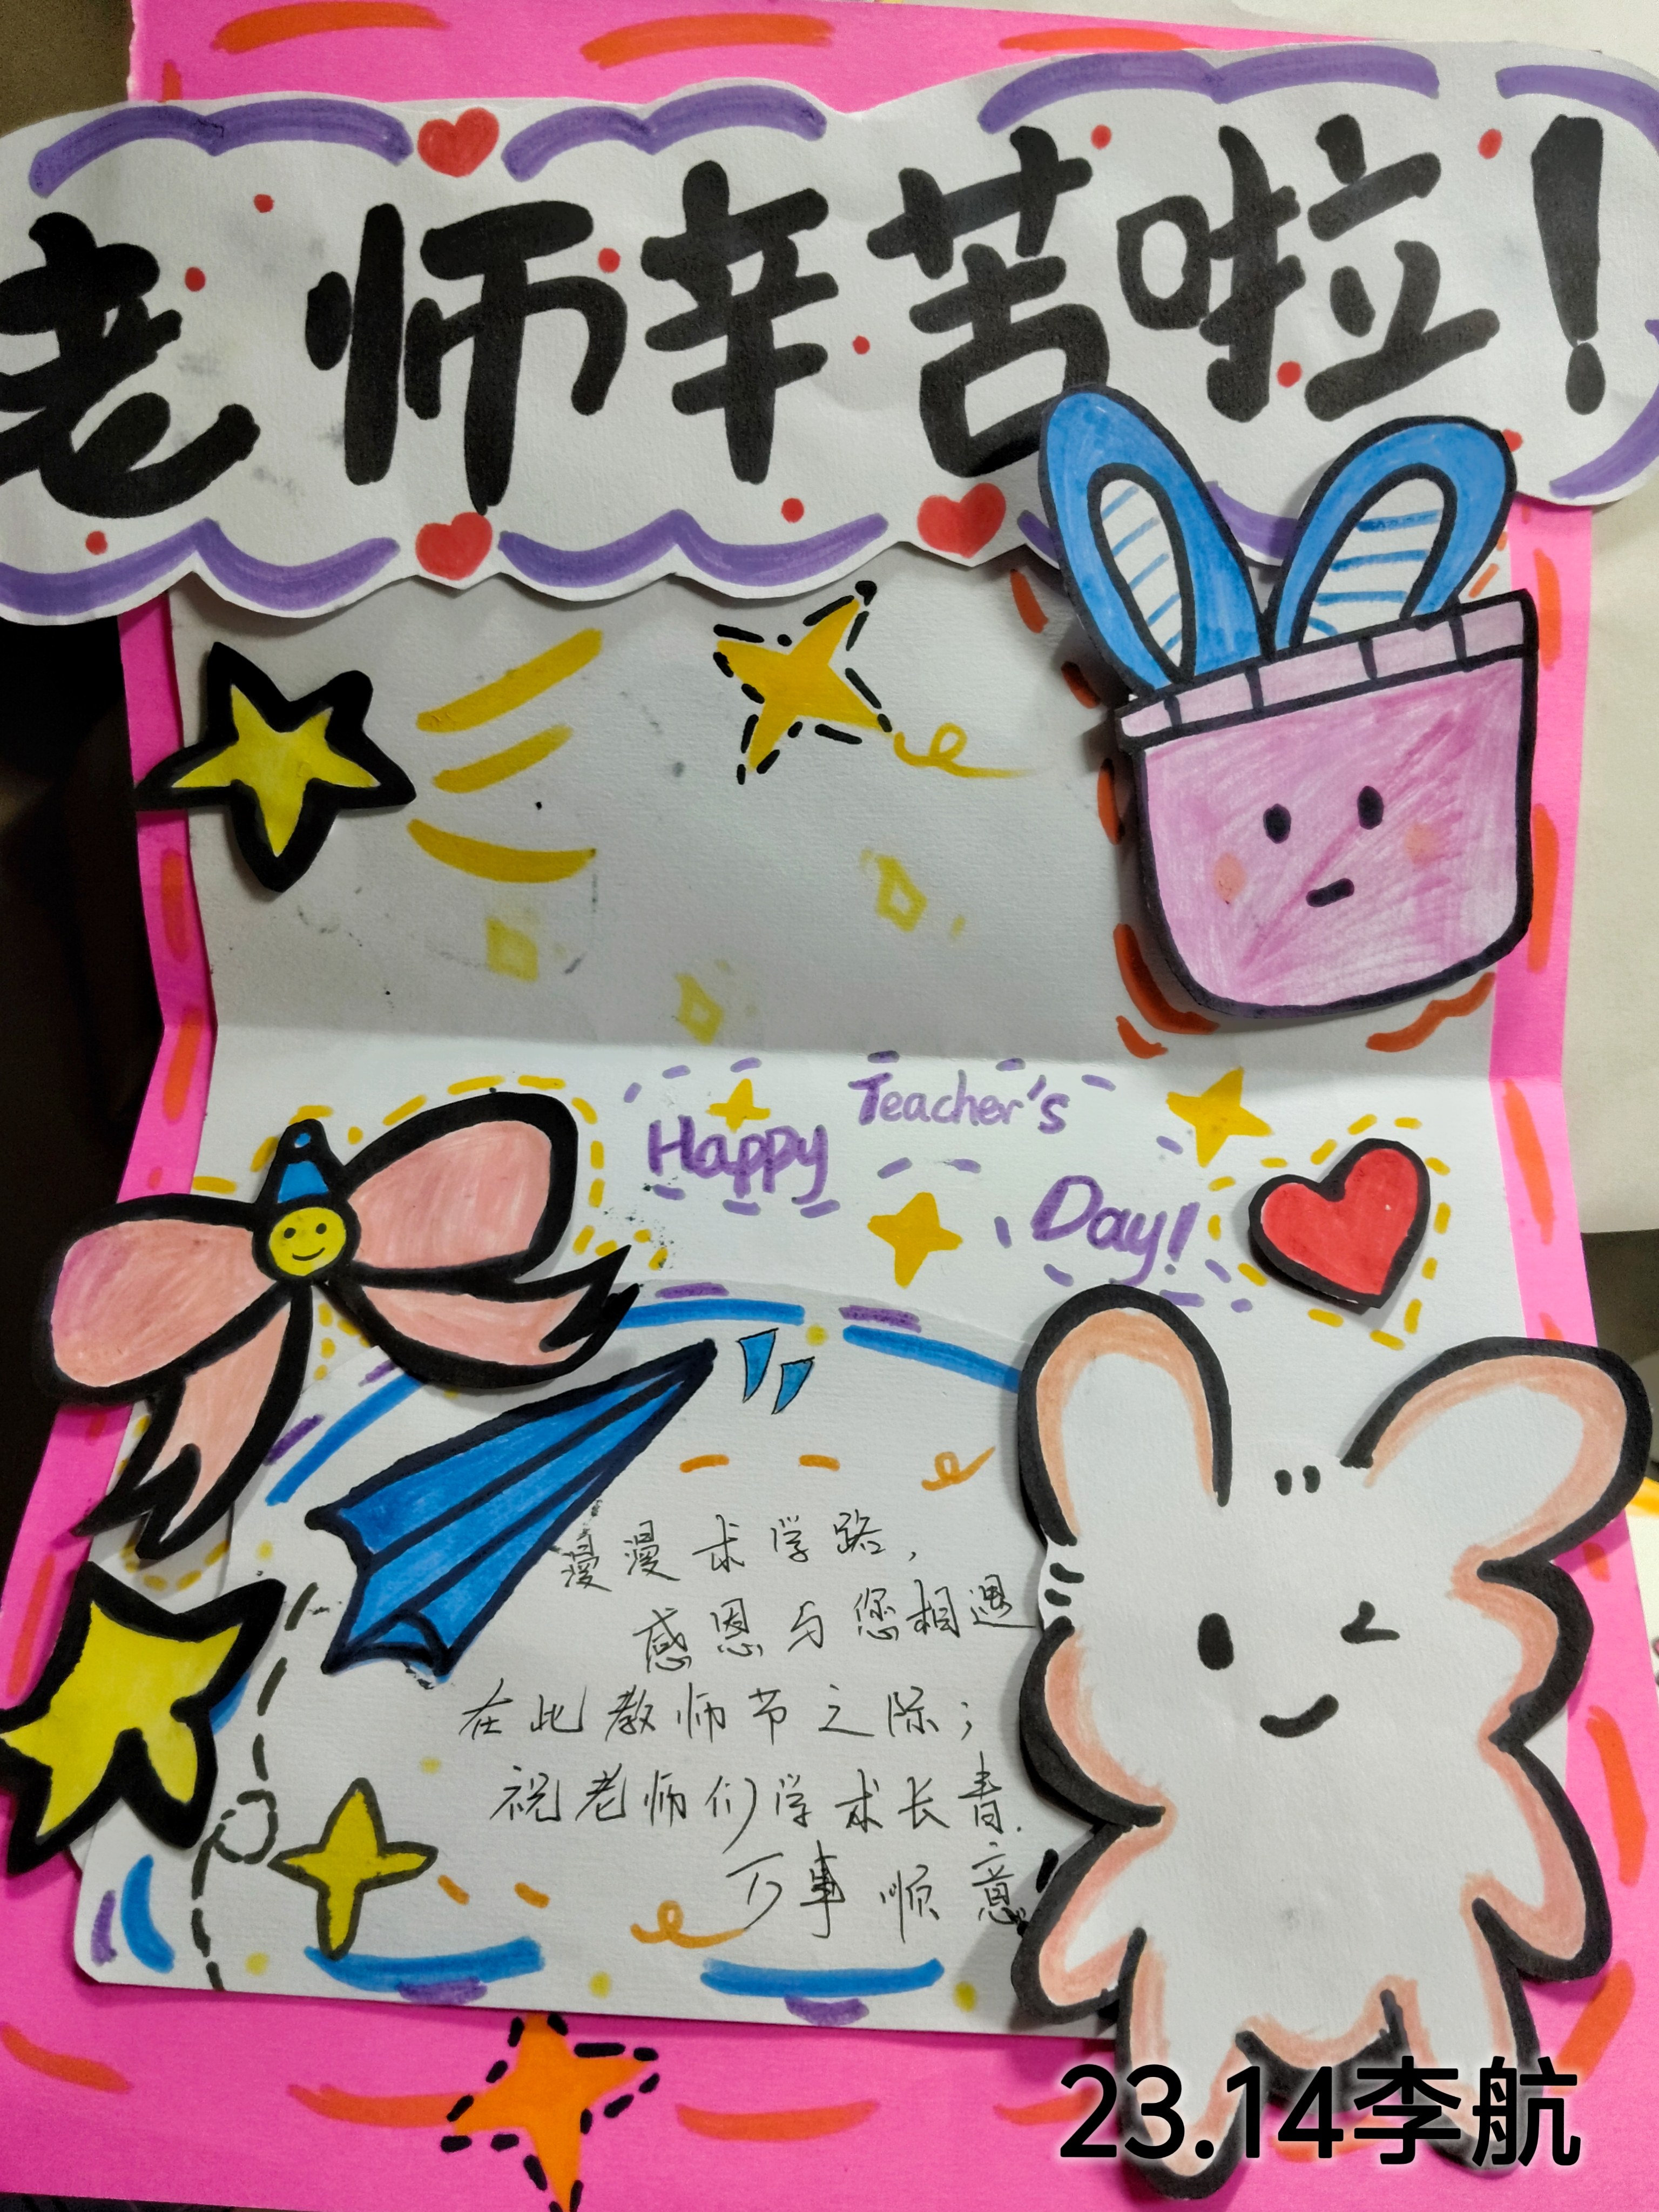 老师辛苦啦!
Happy Teacher's Day!
漫漫求学路,
感恩与您相遇
在此教师节之际;
祝老师们学术长青.
万事顺意
23.14李航